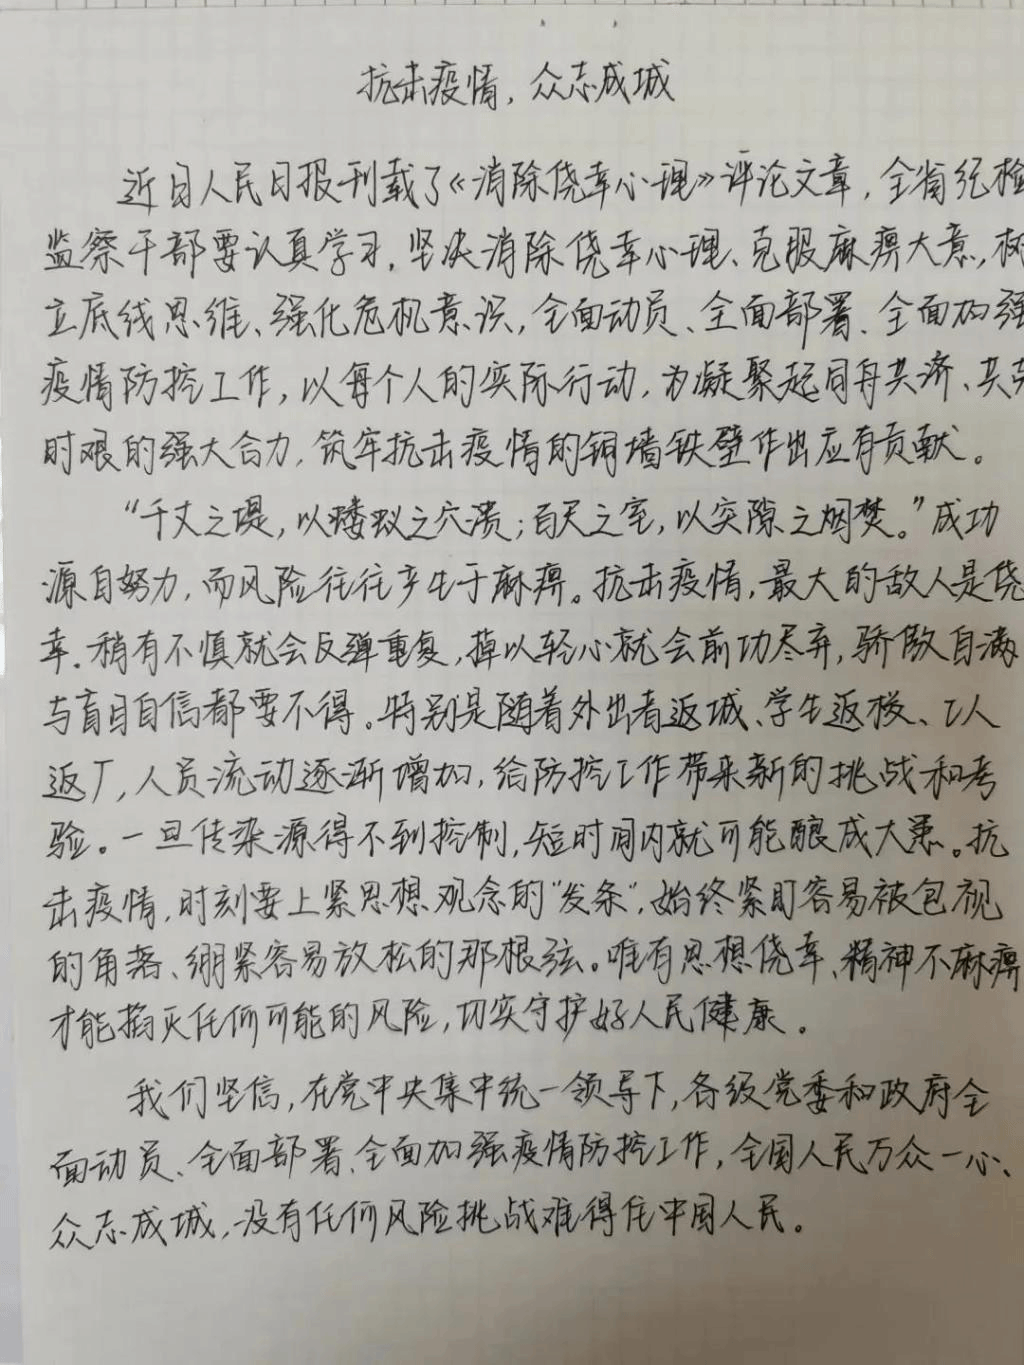 抗击疫情，众志成城
近日人民日报刊载了《消除侥幸心理》评论文章，全省纪检
监察干部要认真学习，坚决消除侥幸心理、克服麻痹大意，树
立底线思维、强化危机意识，全面动员、全面部署、全面加强
疫情防控工作，以每个人的实际行动，为凝聚起同舟共济、共克
时艰的强大合力，筑牢抗击疫情的铜墙铁壁作出应有贡献。
“千丈之堤，以蝼蚁之穴溃；百尺之室，以突隙之烟焚。”成功
源自努力，而风险往往产生于麻痹。抗击疫情，最大的敌人是侥
幸。稍有不慎就会反弹重复，掉以轻心就会前功尽弃，骄傲自满
与盲目自信都要不得。特别是随着外出者返城、学生返校、工人
返厂，人员流动逐渐增加，给防控工作带来新的挑战和考
验。一旦传染源得不到控制，短时间内就可能酿成大患。抗
击疫情，时刻要上紧思想观念的“发条”，始终紧盯容易被包视
的角落、绷紧容易放松的那根弦。唯有思想侥幸、精神不麻痹
才能掐灭任何可能的风险，切实守护好人民健康。
我们坚信，在党中央集中统一领导下，各级党委和政府全
面动员、全面部署、全面加强疫情防控工作，全国人民万众一心、
众志成城，没有任何风险挑战难得住中国人民。